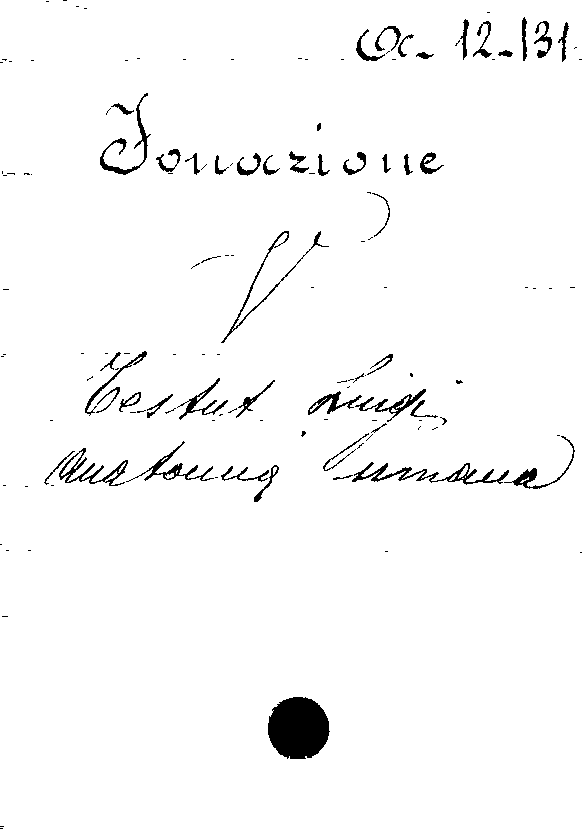 Oc- 12-131
Fonazione
V
Testut Luigi
Anatomia umana